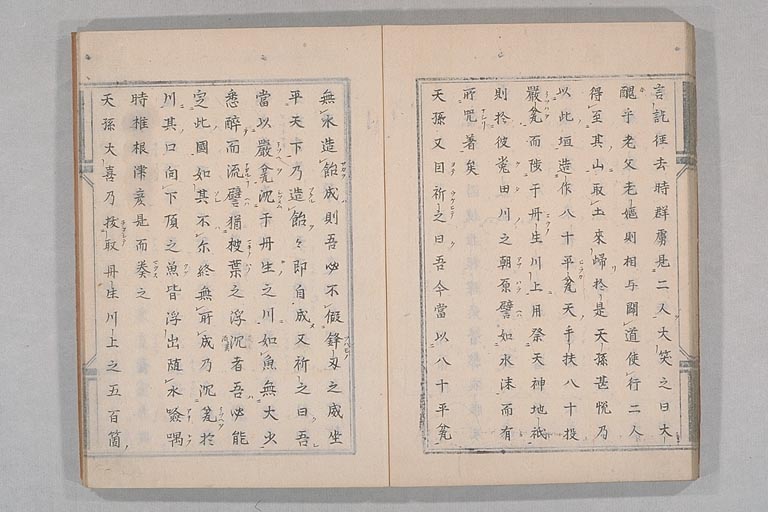 言訖徑去時群虜見二人大笑之曰大
醜乎老父老嫗則相与闢道使行二人
得至其山取土來歸於是天孫甚悦乃
以此埴造作八十平瓮天手抉八十枚
嚴瓮而陟于丹生川上用祭天神地祇
則於彼菟田川之朝原譬如水沫而有
所咒著矣
天孫又因祈之曰吾今當以八十平瓮
無水造飴成則吾必不假鋒刃之威坐
平天下乃造飴〻即自成又祈之曰吾
當以嚴瓮沈于丹生之川如魚無大少
悉醉而流譬猶柀葉之浮沉者吾必能
定此國如其不尓終無所成乃沉瓮於
川其口向下頂之魚皆浮出随水噞喁
時椎根津彦見而奏之
天孫大喜乃拔取丹生川上之五百箇